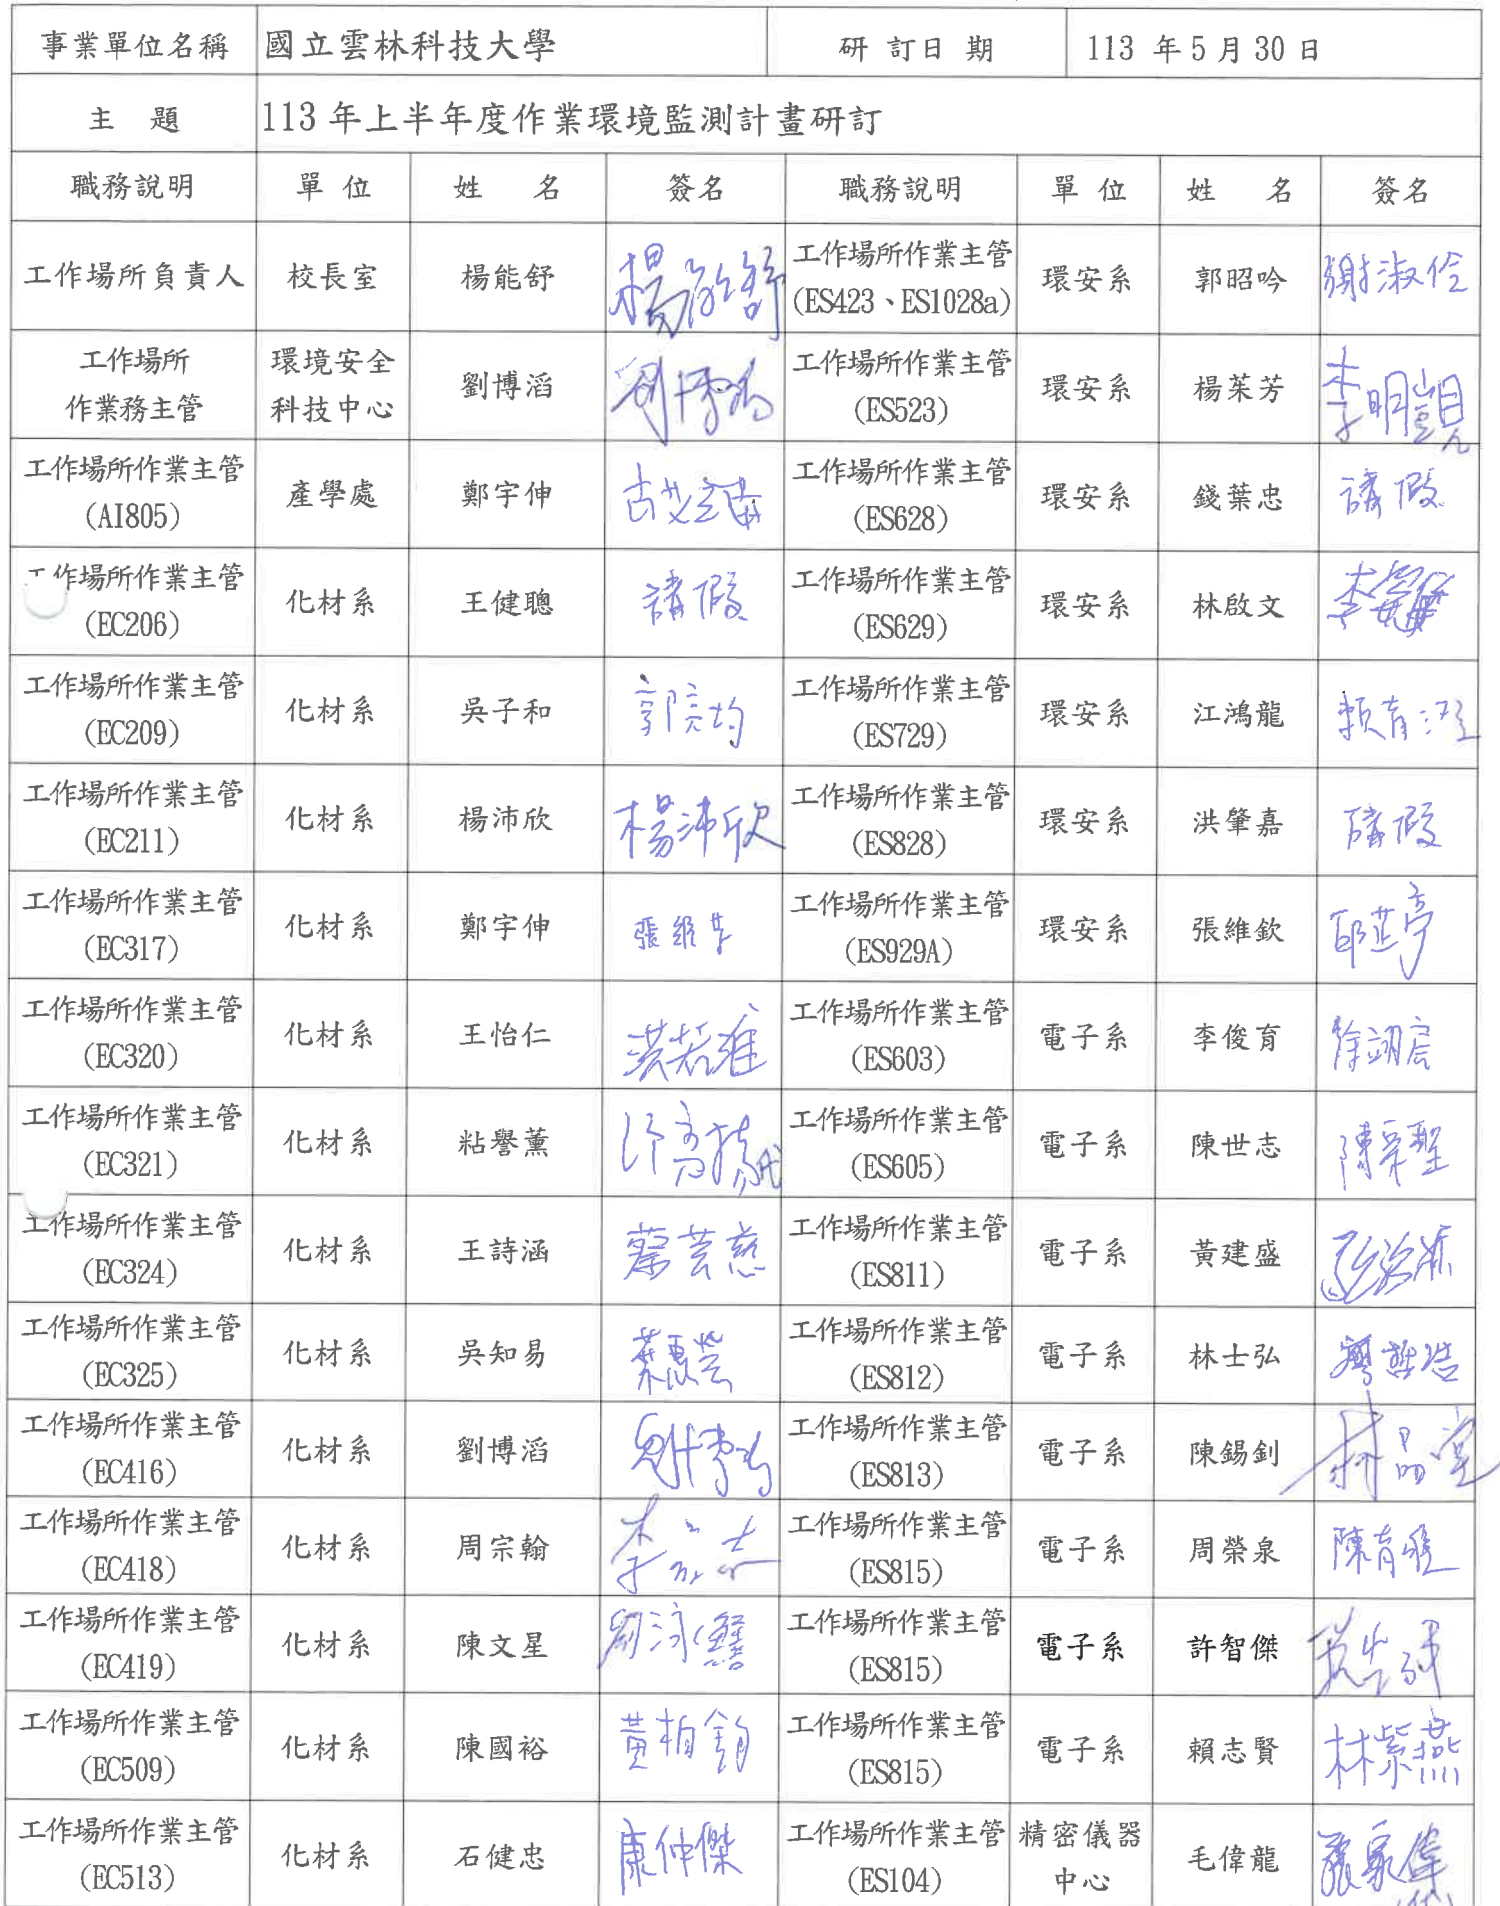 事業單位名稱 國立雲林科技大學 研訂日期 113 年 5 月 30 日
主 題 113 年上半年度作業環境監測計畫研訂
職務說明 單位 姓 名 簽名 職務說明 單位 姓 名 簽名
工作場所負責人 校長室 楊能舒 楊能舒 工作場所作業主管 (ES423、ES1028a) 環安系 郭昭吟 謝淑伶
工作場所 作業務主管 環境安全 科技中心 劉博滔 劉博滔 工作場所作業主管 (ES523) 環安系 楊茱芳 李明顗
工作場所作業主管 (AI805) 產學處 鄭宇伸 工作場所作業主管 (ES628) 環安系 錢葉忠 請假
工作場所作業主管 (EC206) 化材系 王健聰 請假 工作場所作業主管 (ES629) 環安系 林啟文
工作場所作業主管 (EC209) 化材系 吳子和 郭院均 工作場所作業主管 (ES729) 環安系 江鴻龍
工作場所作業主管 (EC211) 化材系 楊沛欣 楊沛欣 工作場所作業主管 (ES828) 環安系 洪肇嘉 請假
工作場所作業主管 (EC317) 化材系 鄭宇伸 工作場所作業主管 (ES929A) 環安系 張維欽 邱芷亭
工作場所作業主管 (EC320) 化材系 王怡仁 洪若淮 工作場所作業主管 (ES603) 電子系 李俊育 徐翊宸
工作場所作業主管 (EC321) 化材系 粘譽薰 工作場所作業主管 (ES605) 電子系 陳世志
工作場所作業主管 (EC324) 化材系 王詩涵 蔡芸慈 工作場所作業主管 (ES811) 電子系 黃建盛
工作場所作業主管 (EC325) 化材系 吳知易 工作場所作業主管 (ES812) 電子系 林士弘 廖哲浩
工作場所作業主管 (EC416) 化材系 劉博滔 劉博滔 工作場所作業主管 (ES813) 電子系 陳錫釗 林晶堂
工作場所作業主管 (EC418) 化材系 周宗翰 工作場所作業主管 (ES815) 電子系 周榮泉
工作場所作業主管 (EC419) 化材系 陳文星 工作場所作業主管 (ES815) 電子系 許智傑
工作場所作業主管 (EC509) 化材系 陳國裕 黃柏鈞 工作場所作業主管 (ES815) 電子系 賴志賢 林紫燕
工作場所作業主管 (EC513) 化材系 石健忠 康仲傑 工作場所作業主管 (ES104) 精密儀器 中心 毛偉龍 張家偉